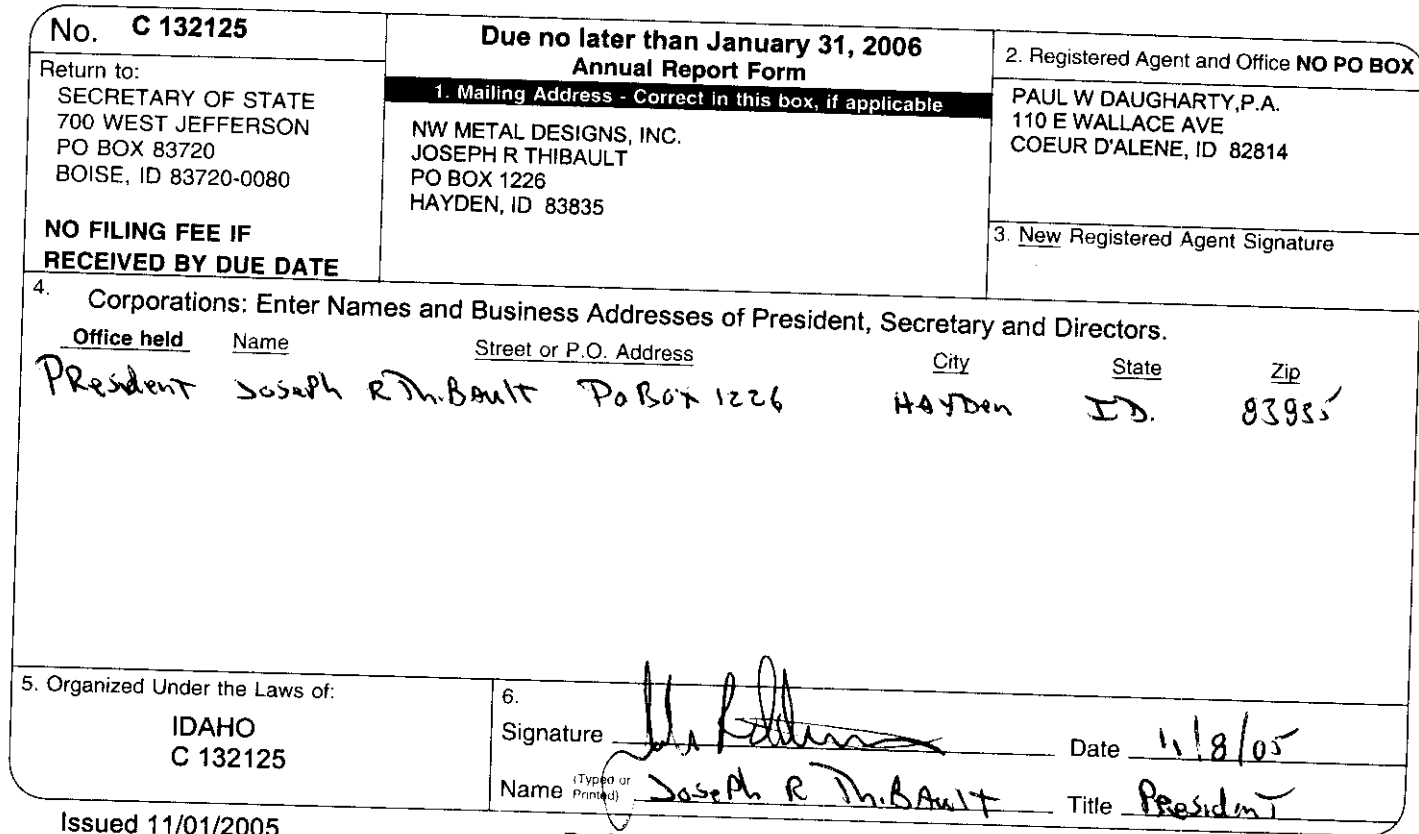 No. C 132125
Return to:
SECRETARY OF STATE
700 WEST JEFFERSON
PO BOX 83720
BOISE, ID 83720-0080
NO FILING FEE IF
RECEIVED BY DUE DATE
Due no later than January 31, 2006
Annual Report Form
1. Mailing Address - Correct in this box, if applicable
NW METAL DESIGNS, INC.
JOSEPH R THIBAULT
PO BOX 1226
HAYDEN, ID 83835
2. Registered Agent and Office NO PO BOX
PAUL W DAUGHARTY,P.A.
110 E WALLACE AVE
COEUR D'ALENE, ID 82814
3. New Registered Agent Signature
4. Corporations: Enter Names and Business Addresses of President, Secretary and Directors.
Office held Name Street or P.O. Address City State Zip
PResident Joseph R ThiBault Po Box 1226 HAYDen ID.
5. Organized Under the Laws of:
IDAHO
C 132125
6.
Signature Date 11/8/05
Name (Typed or Printed) Joseph R ThiBAult Title President
Issued 11/01/2005